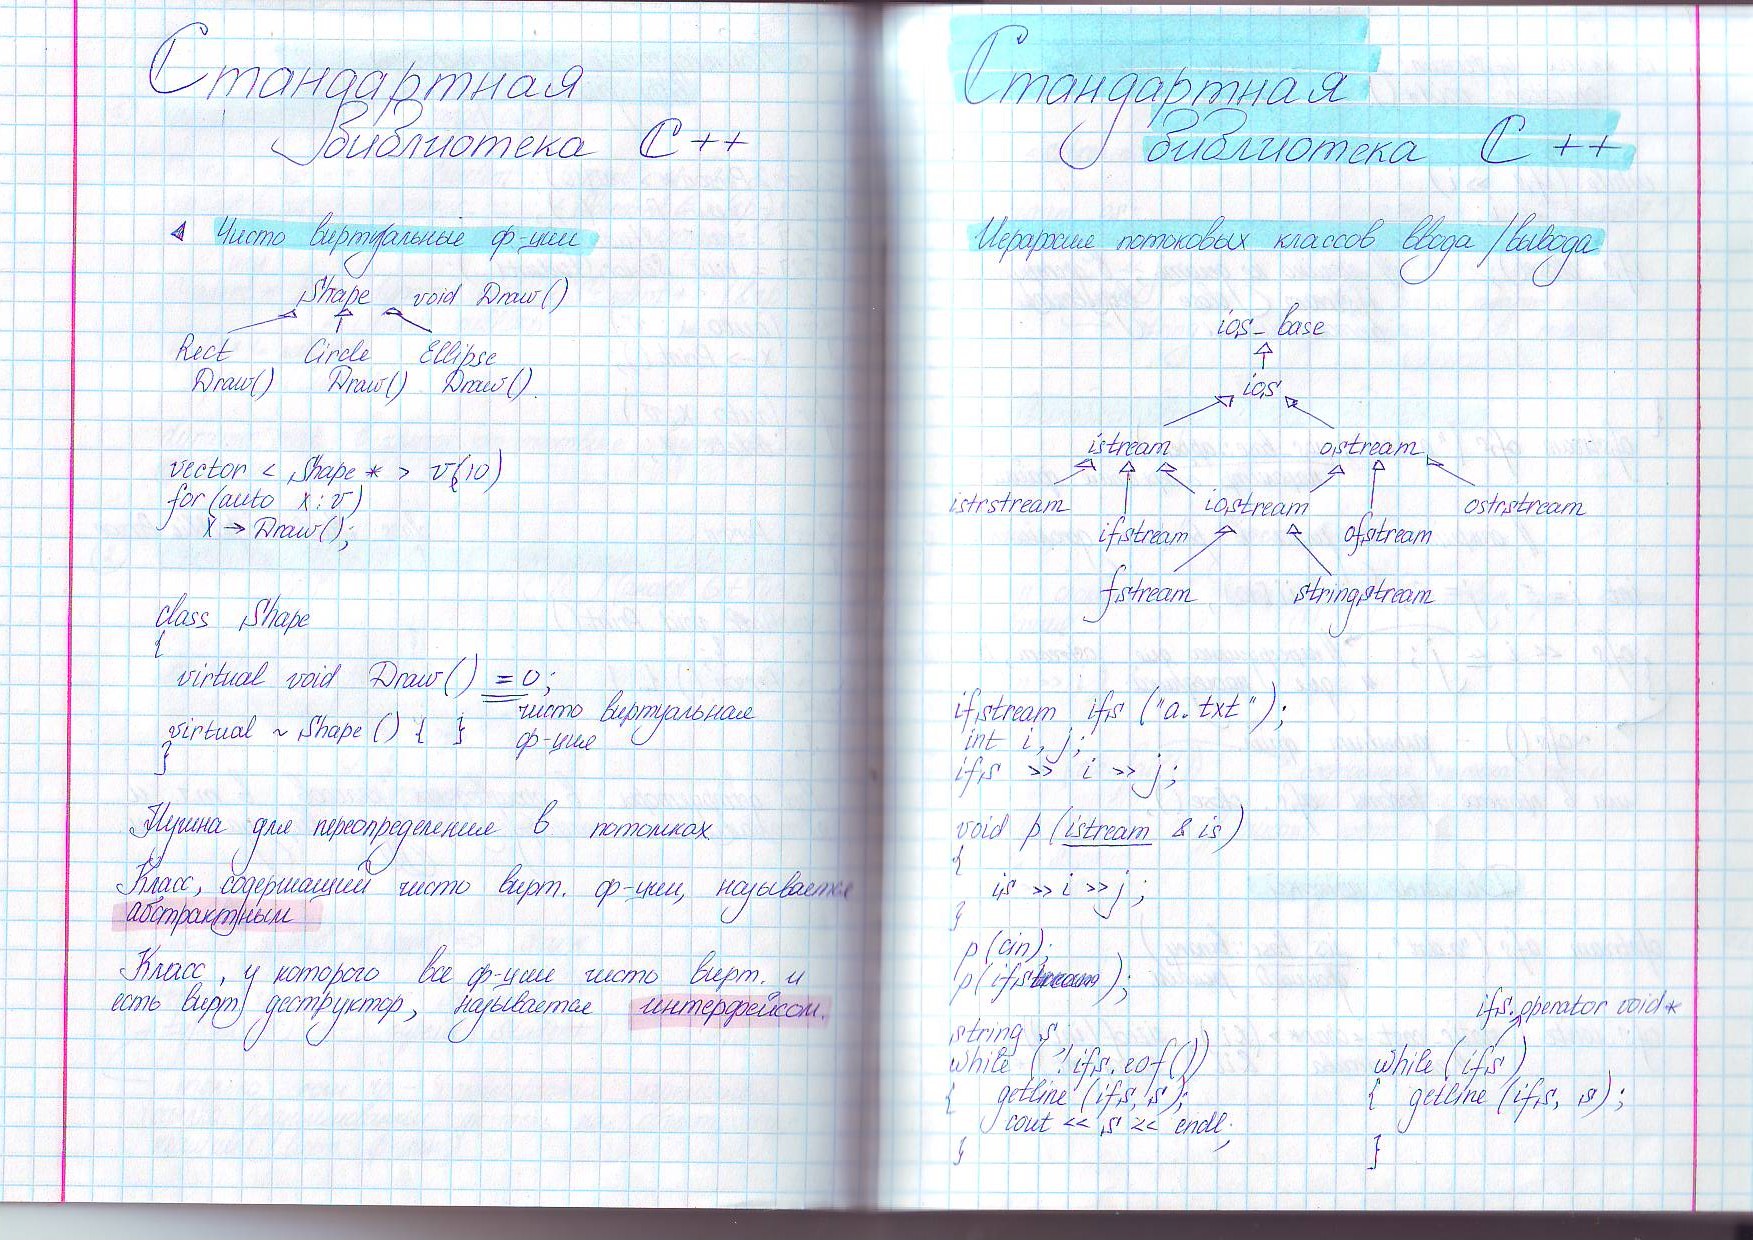 Стандартная
библиотека C++
Чисто виртуальные ф-ции
Shape void Draw()
Rect Circle Ellipse
Draw() Draw() Draw()
vector < Shape * > v(10)
for (auto x : v)
x → Draw();
class Shape
{
virtual void Draw() = 0;
чисто виртуальная
virtual ~ Shape () { }
ф-ция
}
Нужна для переопределения в потомках
Класс, содержащий чисто вирт. ф-ции, называется
абстрактным
Класс, у которого все ф-ции чисто вирт. и
есть вирт. деструктор, называется интерфейсом.
Стандартная
библиотека C++
Иерархия потоковых классов ввода/вывода
ios_base
ios
istream ostream
istrstream iostream ostrstream
ifstream ofstream
fstream stringstream
ifstream ifs ("a.txt");
int i, j;
ifs >> i >> j;
void p (istream & is)
{
is >> i >> j;
}
p(cin);
p(ifs);
ifs.operator void*
string s;
while ( ! ifs.eof())
{ getline (ifs, s);
cout << s << endl;
}
while (ifs)
{ getline (ifs, s);
}